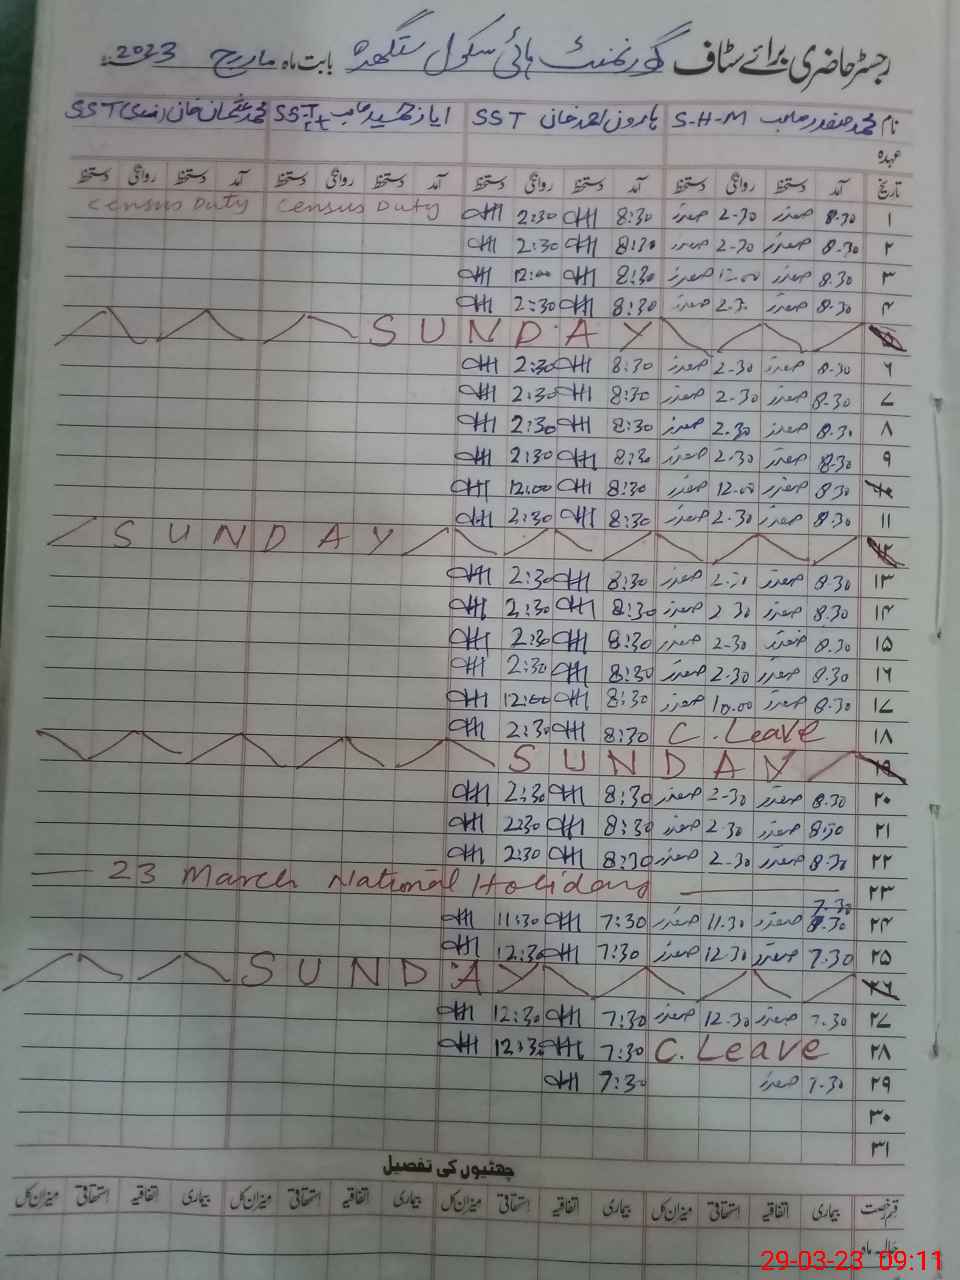 رجسٹر حاضری برائے سٹاف گورنمنٹ ہائی سکول بابت ماہ مارچ 2023
نام محمد صفدر صاحب S-H-M ہارون احمد خان SST ایاز حمید صاحب SST محمد عثمان خان SST
عہدہ
تاریخ آمد دستخط روانگی دستخط آمد دستخط روانگی دستخط آمد دستخط روانگی دستخط آمد دستخط روانگی دستخط
۱ 8.30 صفدر 2-30 صفدر 8:30 2:30 Census Duty Census Duty
۲ 8.30 صفدر 2-30 صفدر 8:30 2:30
۳ 8.30 صفدر 12.00 صفدر 8:30 12:00
۴ 8.30 صفدر 2.30 صفدر 8:30 2:30
۵ SUNDAY
۶ 8.30 صفدر 2.30 صفدر 8:30 2:30
۷ 8.30 صفدر 2.30 صفدر 8:30 2:30
۸ 8.30 صفدر 2.30 صفدر 8:30 2:30
۹ 8.30 صفدر 2.30 صفدر 8:30 2:30
۱۰ 8.30 صفدر 12.00 صفدر 8:30 12:00
۱۱ 8.30 صفدر 2.30 صفدر 8:30 2:30
۱۲ SUNDAY
۱۳ 8.30 صفدر 2.30 صفدر 8:30 2:30
۱۴ 8.30 صفدر 2.30 صفدر 8:30 2:30
۱۵ 8.30 صفدر 2-30 صفدر 8:30 2:30
۱۶ 8.30 صفدر 2.30 صفدر 8:30 2:30
۱۷ 8.30 صفدر 10.00 صفدر 8:30 12:00
۱۸ C. Leave 8:30 2:30
۱۹ SUNDAY
۲۰ 8.30 صفدر 2-30 صفدر 8:30 2:30
۲۱ 8.30 صفدر 2.30 صفدر 8:30 2:30
۲۲ 8.30 صفدر 2.30 صفدر 8:30 2:30
۲۳ 23 March National Holiday
۲۴ 7.30 8.30 صفدر 11.30 صفدر 7:30 11:30
۲۵ 7.30 صفدر 12.30 صفدر 7:30 12:30
۲۶ SUNDAY
۲۷ 7.30 صفدر 12.30 صفدر 7:30 12:30
۲۸ C. Leave 7:30 12:30
۲۹ 7.30 صفدر 7:30
۳۰
۳۱
چھٹیوں کی تفصیل
قسم رخصت بیماری اتفاقیہ استحقاقی میزان کل بیماری اتفاقیہ استحقاقی میزان کل بیماری اتفاقیہ استحقاقی میزان کل بیماری اتفاقیہ استحقاقی میزان کل
29-03-23 09:11